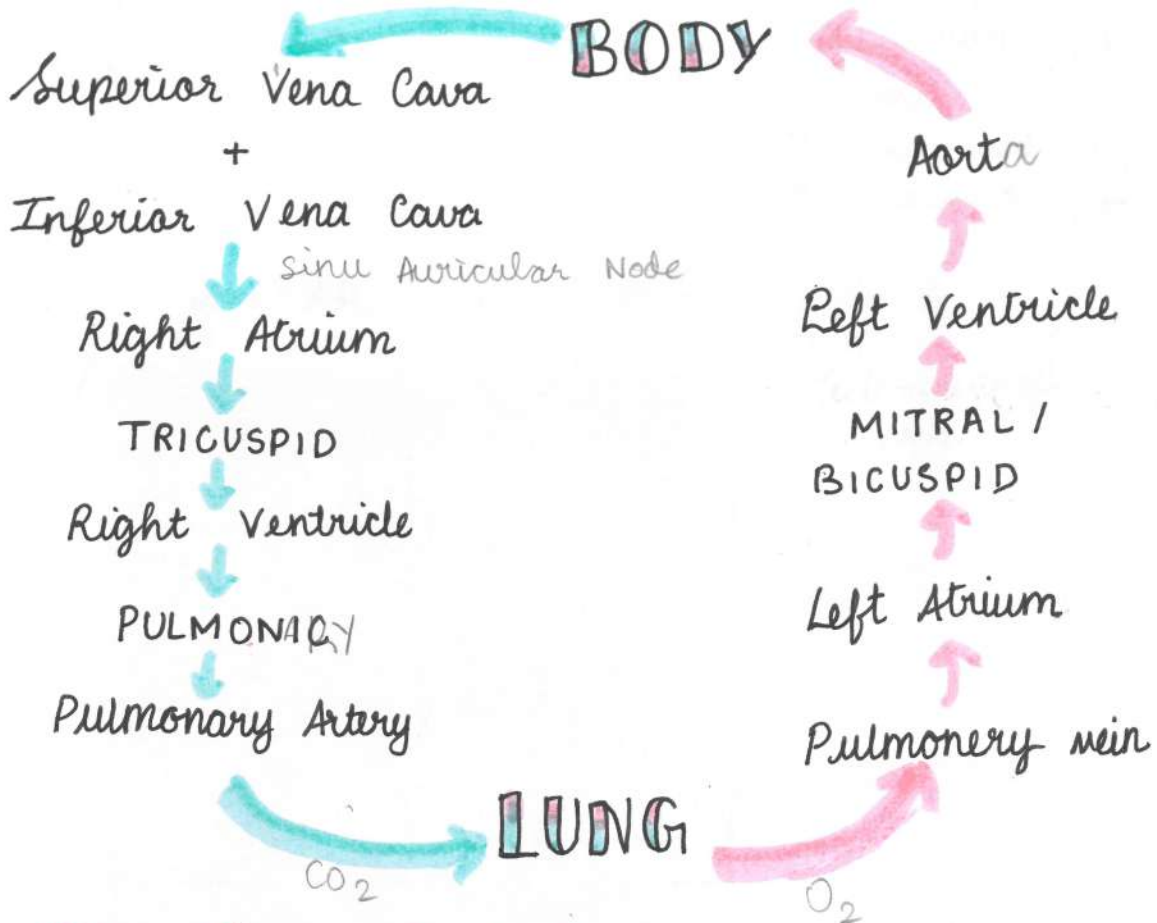 BODY
Superior Vena Cava
+
Inferior Vena Cava
Sinu Auricular Node
Right Atrium
TRICUSPID
Right Ventricle
PULMONARY
Pulmonary Artery
CO2
LUNG
O2
Pulmonery vein
Left Atrium
MITRAL /
BICUSPID
Left Ventricle
Aorta